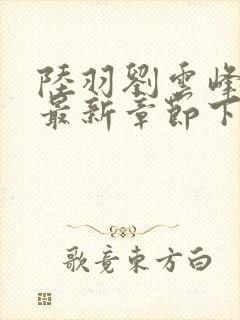 陸羽劉雲峰
最新章節下
歌竟東方白